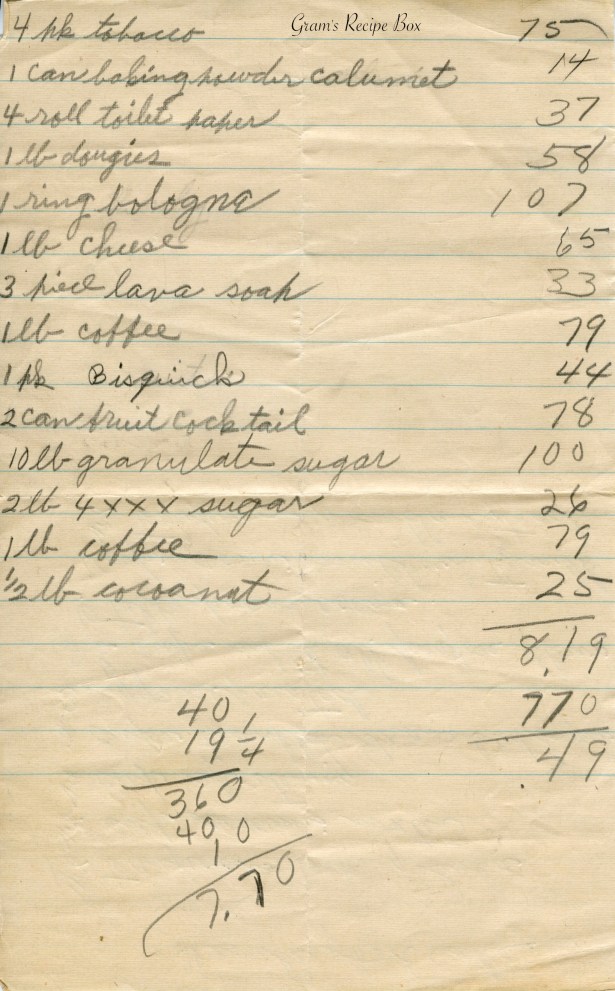 Gram's Recipe Box
4 pk tobacco 75
1 can baking powder calumet 14
4 roll toilet paper 37
1 lb dougies 58
1 ring bologna 107
1 lb cheese 65
3 piece lava soap 33
1 lb coffee 79
1 pk Bisquick 44
2 can fruit cocktail 78
10 lb granulate sugar 100
2 lb 4xxx sugar 26
1 lb coffee 79
1/2 lb cocoanut 25
8.19
770
49
40
19 1/4
360
400
1
7.70